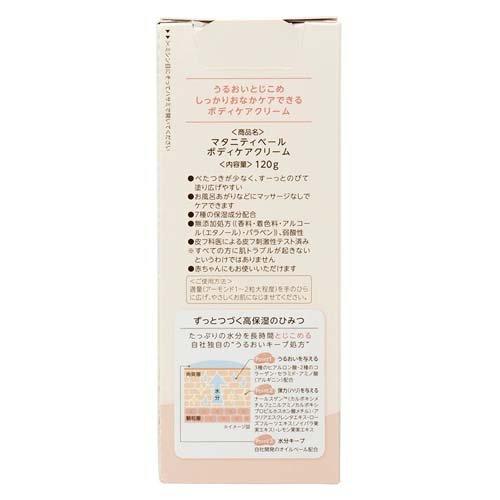 ▲▲ミシン目にそってハサミで開いてください
うるおいとじこめ
しっかりおなかケアできる
ボディケアクリーム
<商品名>
マタニティベール
ボディケアクリーム
<内容量>120g
●べたつきが少なく、すーっとのびて
塗り広げやすい
●お風呂あがりなどにマッサージなしで
ケアできます
●7種の保湿成分配合
●無添加処方((香料・着色料・アルコール
(エタノール)・パラベン))、弱酸性
●皮フ科医による皮フ刺激性テスト済み
※すべての方に肌トラブルが起きない
というわけではありません
●赤ちゃんにもお使いいただけます
<ご使用方法>
適量(アーモンド1~2粒大程度)を手のひら
に広げ、やさしくお肌になじませてください。
ずっとつづく高保湿のひみつ
たっぷりの水分を長時間とじこめる
自社独自の"うるおいキープ処方"
角質層
水分
顆粒層
※イメージ図
Point1 うるおいを与える
3種のヒアルロン酸・2種のコ
ラーゲン・セラミド・アミノ酸
(アルギニン)配合
Point2 弾力(ハリ)を与える
プロピルホスホン酸メチル)・ア
ラリアエスクレンタエキス・ロー
ズフルーツエキス(ノイバラ果
実エキス)・レモン果実エキス
Point3 水分キープ
自社開発のオイルベール配合